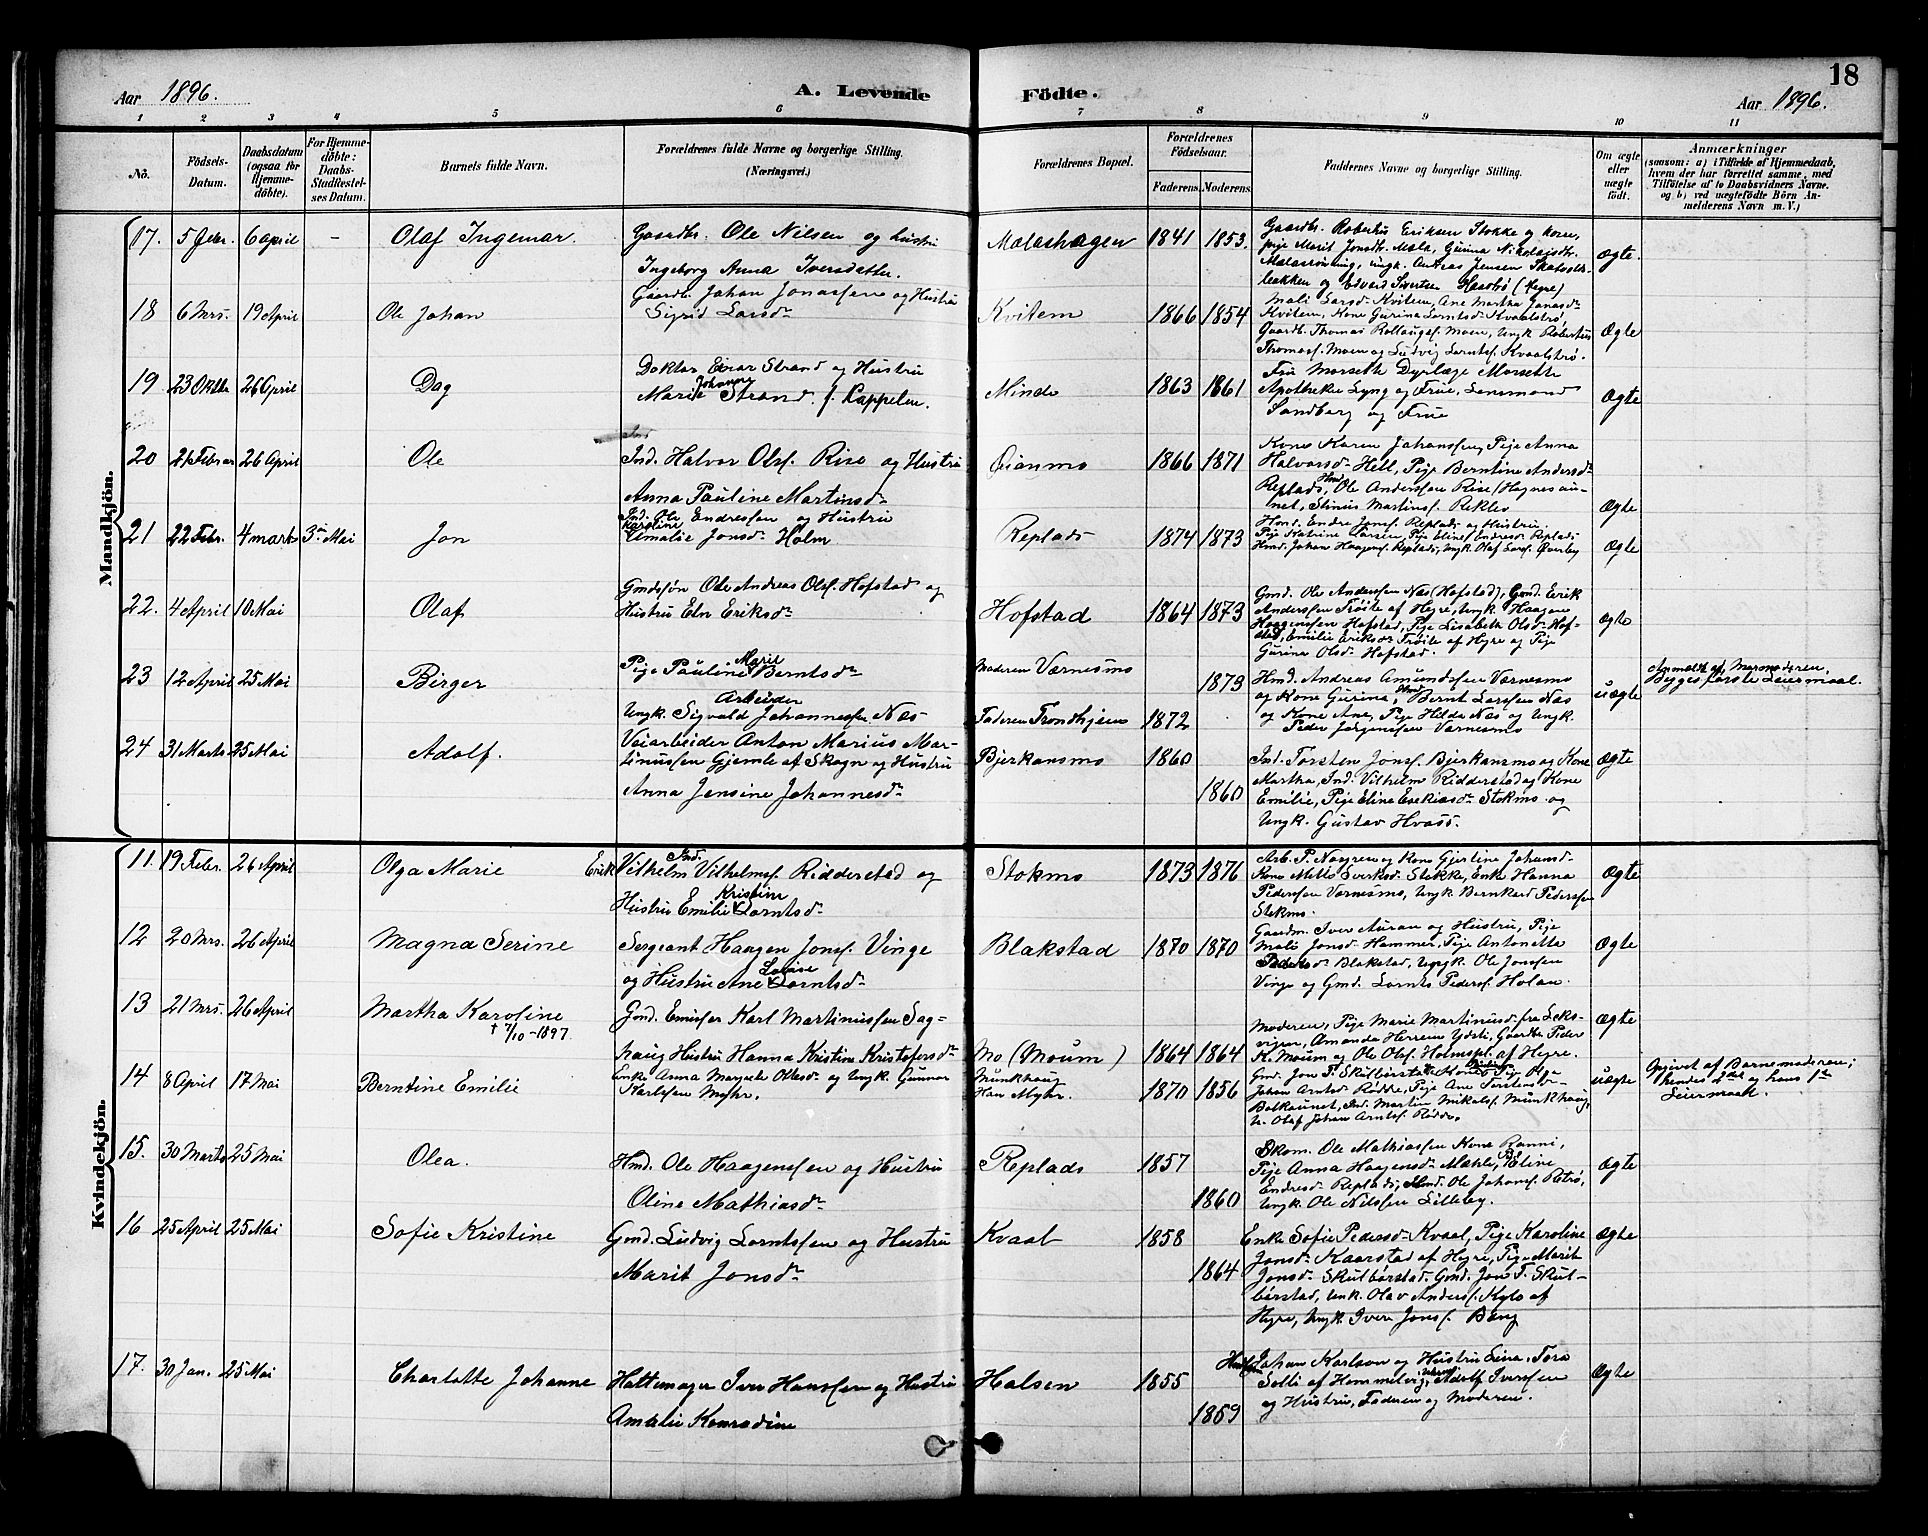 18
Aar 1896.
A. Levende Födte.
Aar 1896.
1 2 3 4 5 6 7 8 9 10 11
No.
Födsels-Datum.
Daabsdatum (ogsaa for Hjemmedöbte).
For Hjemmedöbte: Daabs-Stadfæstelses Datum.
Barnets fulde Navn.
Forældrenes fulde Navne og borgerlige Stilling. (Næringsvei.)
Forældrenes Bopæl.
Forældrenes Födselsaar.
Faderens Moderens
Faddernes Navne og borgerlige Stilling.
Om ægte eller uægte födt.
Anmærkninger
(saasom: a) i Tilfælde af Hjemmedaab, hvem der har forrettet samme, med Tilföielse af to Daabsvidners Navne, og b) ved uægtefödte Börn Anmelderens Navn m. V.)
Mandkjön.
17. 5 Febr. 6 april - Olaf Ingemar.
Gaardbr. Ole Nilsen og hustru
Ingeborg Anna Iversdatter.
Malashagen 1841 1853.
Gaardbr. Robertus Eriksen Stokke og kone,
pige Marit Jonsdtr. Mæla, Gurina Nikolaisdtr.
Ægte.
18 6 Mrs. 19 April Ole Johan
Gaardb. Johan Jonassen og Hustru
Sigrid Larsdr
Kvitem 1866 1854
Mali Larsd. Kvitem, Ane Martha Jonasdr
Kvitem, Kone Gurina Lorntsdr Kvaalstrø,
Gaardb. Thomas Rollaugsf. Moen, Ungk. Robertus
Thomasf. Moen og Ludvig Lorntsf. Kvaalstrø.
Ægte
19 23 Oktbr 26 April Dag
Doktor Einar Strand og Hustru
Marie Johanne Strand f. Cappelen.
Minde 1863 1861
Fru Morseth Dyrlæge Morseth
Apotheker Lyng og Frue, Lensmand
Sandberg og Frue
Ægte
20 21 Februar 26 April Ole
Ind. Halvor Olsf. Rise og Hustru
Anna Pauline Martinsdr
Øianmo 1866 1871
Kone Karen Johanssen, Pige Anna
Halvorsdr Hell, Pige Berntine Andersdr
Replads, Ole Anderssen Rise (Hognesau-
net, Stinius Martinsf. Reklev
Ægte
21 22 Febr. 4 marts 3die Mai Jon
Ind. Ole Endressen og Hustru
Karoline Amalie Jonsd. Holm
Replads 1874 1873
Hmd. Endre Jonsf. Replads og Hustru.
Pige Katrine Larsen, Pige Eline Endresdr Replads
Hmd. Johan Haagensf. Replads, Ungk. Olaf Larsf. Øverby
Ægte
22. 4 April 10 Mai Olaf
Gmdssøn Ole Andreas Olsf. Hofstad og
Hustru Eln Eriksdr
Hofstad 1864 1873
Gmd. Ole Anderssen Næs (Hofstad), Gmd. Erik
Anderssen Trøite af Hegre, Ungk. Haagen
Haagenssen Hofstad, Pige Lisabeth Olsdr Hof-
stad, Emilie Eriksdr Trøite af Hegre og Pige
Gurina Olsdr Hofstad.
Ægte
23 12 April 25 Mai Birger
Pige Pauline Marie Berntsdr
Arbeider
Ungk. Sigvald Johannessen Næs
Moderen Værnesmo 1873
Faderen Trondhjem 1872
Hmd. Andreas Amundssen Værnesmo
og Kone Gurina, Hmd. Bernt Larssen Næs
og Kone Ane, Pige Hilda Næs og Ungk.
Peder Jørgenssen Værnesmo
uægte
Anmeldt af Mormoderen.
Begges første Leiermaal.
24 31 Marts 25 Mai Adolf.
Veiarbeider Anton Marius Mar-
tinussen Gjemle af Skogn og Hustru
Anna Jensine Johannesdr
Bjerkansmo 1860 1860
Ind. Torsten Jonsf. Bjerkansmo og Kone
Martha, Ind. Vilhelm Ridderstad og Kone
Emilie, Pige Eline Esekiasdr Stokmo og
Ungk. Gustav Hvass.
Ægte
Kvindekjön.
11. 19 Febr. 26 April Olga Marie
Erik Vilhelm Ind. Vilhelmsf. Ridderstad og
Hustru Emilie Kristine Lorntsdr
Stokmo 1873 1876
Arb. P. Norgren og Kone Gjertine Johansdr
Kone Mette Sverksdr Stokke, Enke Hanna
Pederssen Værnesmo, Ungk. Bernhard Pederssen
Stokmo.
Ægte
12 20 Mrs. 26 April Magna Serine
Sergeant Haagen Jonsf. Vinge
og Hustru Ane Lovise Lorntsdr
Blakstad 1870 1870
Gaardm. Iver Auran og Hustru, Pige
Mali Jonsdr Hammer, Pige Antonetta
Pedersdr Blakstad, Ungk. Ole Jonssen
Vinge og Gmd. Lornts Pedersf. Holan.
Ægte
13 21 Mrs. 26 April Martha Karoline
† 7/10-1897.
Gmd. Emissær Karl Martinussen Sag-
haug Hustru Hanna Kristine Kristofersdr
Mo (Moum) 1864 1864
Moderen, Pige Marie Martinusd. fra Leks-
vigen, Amanda Herrem Ydsti, Gaardbr. Peder
K. Moum og Ole Olsf. Holmspl. af Hegre.
Ægte
14 8 April 17 Mai Berntine Emilie
Enke Anna Margrete Olesdr og Ungk. Gunnar
Karlssen Myhr.
Munkhaug
Han Myhr. 1870 1856
Gmd. Jon P. Skulbørstad Kone Pige Olga
Johan Arntsd. Rødde, Pige Ane Torstensdr
Balkaunet, Ind. Martin Mikalsf. Munkhaug,
U. Olaf Johan Arntsf. Rødde.
uægte
Opgivet af Barnemoderen;
hendes 2det og hans 1ste
Leiermaal.
15. 30 Marts 25 Mai Olea.
Hmd. Ole Haagenssen og Hustru
Oline Mathiasdr
Replads 1857 1860
Skom. Ole Mathiassen Kone Ranni,
Pige Anna Haagensdr Mæhle, P. Eline
Endresdr Replads, Hmd. Ole Johansf. Røtrø,
Ungk. Ole Nilssen Lilleby.
Ægte
16 25 April 25 Mai Sofie Kristine
Gmd. Ludvig Lorntssen og Hustru
Marit Jonsdr
Kvaal 1858 1864
Enke Sofie Pedersd. Kvaal, Pige Karoline
Jonsdr Kaarstad af Hegre, Pige Marit
Jonsdr Skulbørstad Gmd. Jon T. Skul-
børstad, Unk. Olav Andersf. Kylo af
Hegre, Ungk. Iver Jonsf. Bang
Ægte
17. 30 Jan. 25 Mai Charlotte Johanne
Hattemager Iver Hanssen og Hustru
Amalie Konradine
Halsen 1855 1859
Johan Karlson og Hustru Lina, Tora
Solli af Hommelvig, Adolf Iverssen
og Hustru, Faderen og Moderen.
Ægte